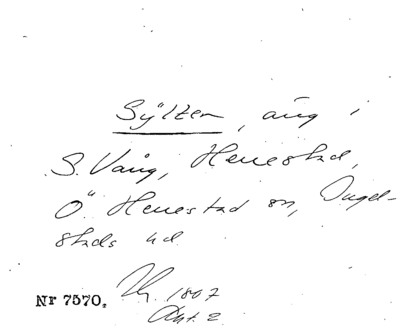 Sÿlten, äng i
S. Vång, Henestad,
Ö Henestad sn, Ingel-
stads hd
Nr 7570. 1807
Akt. 2